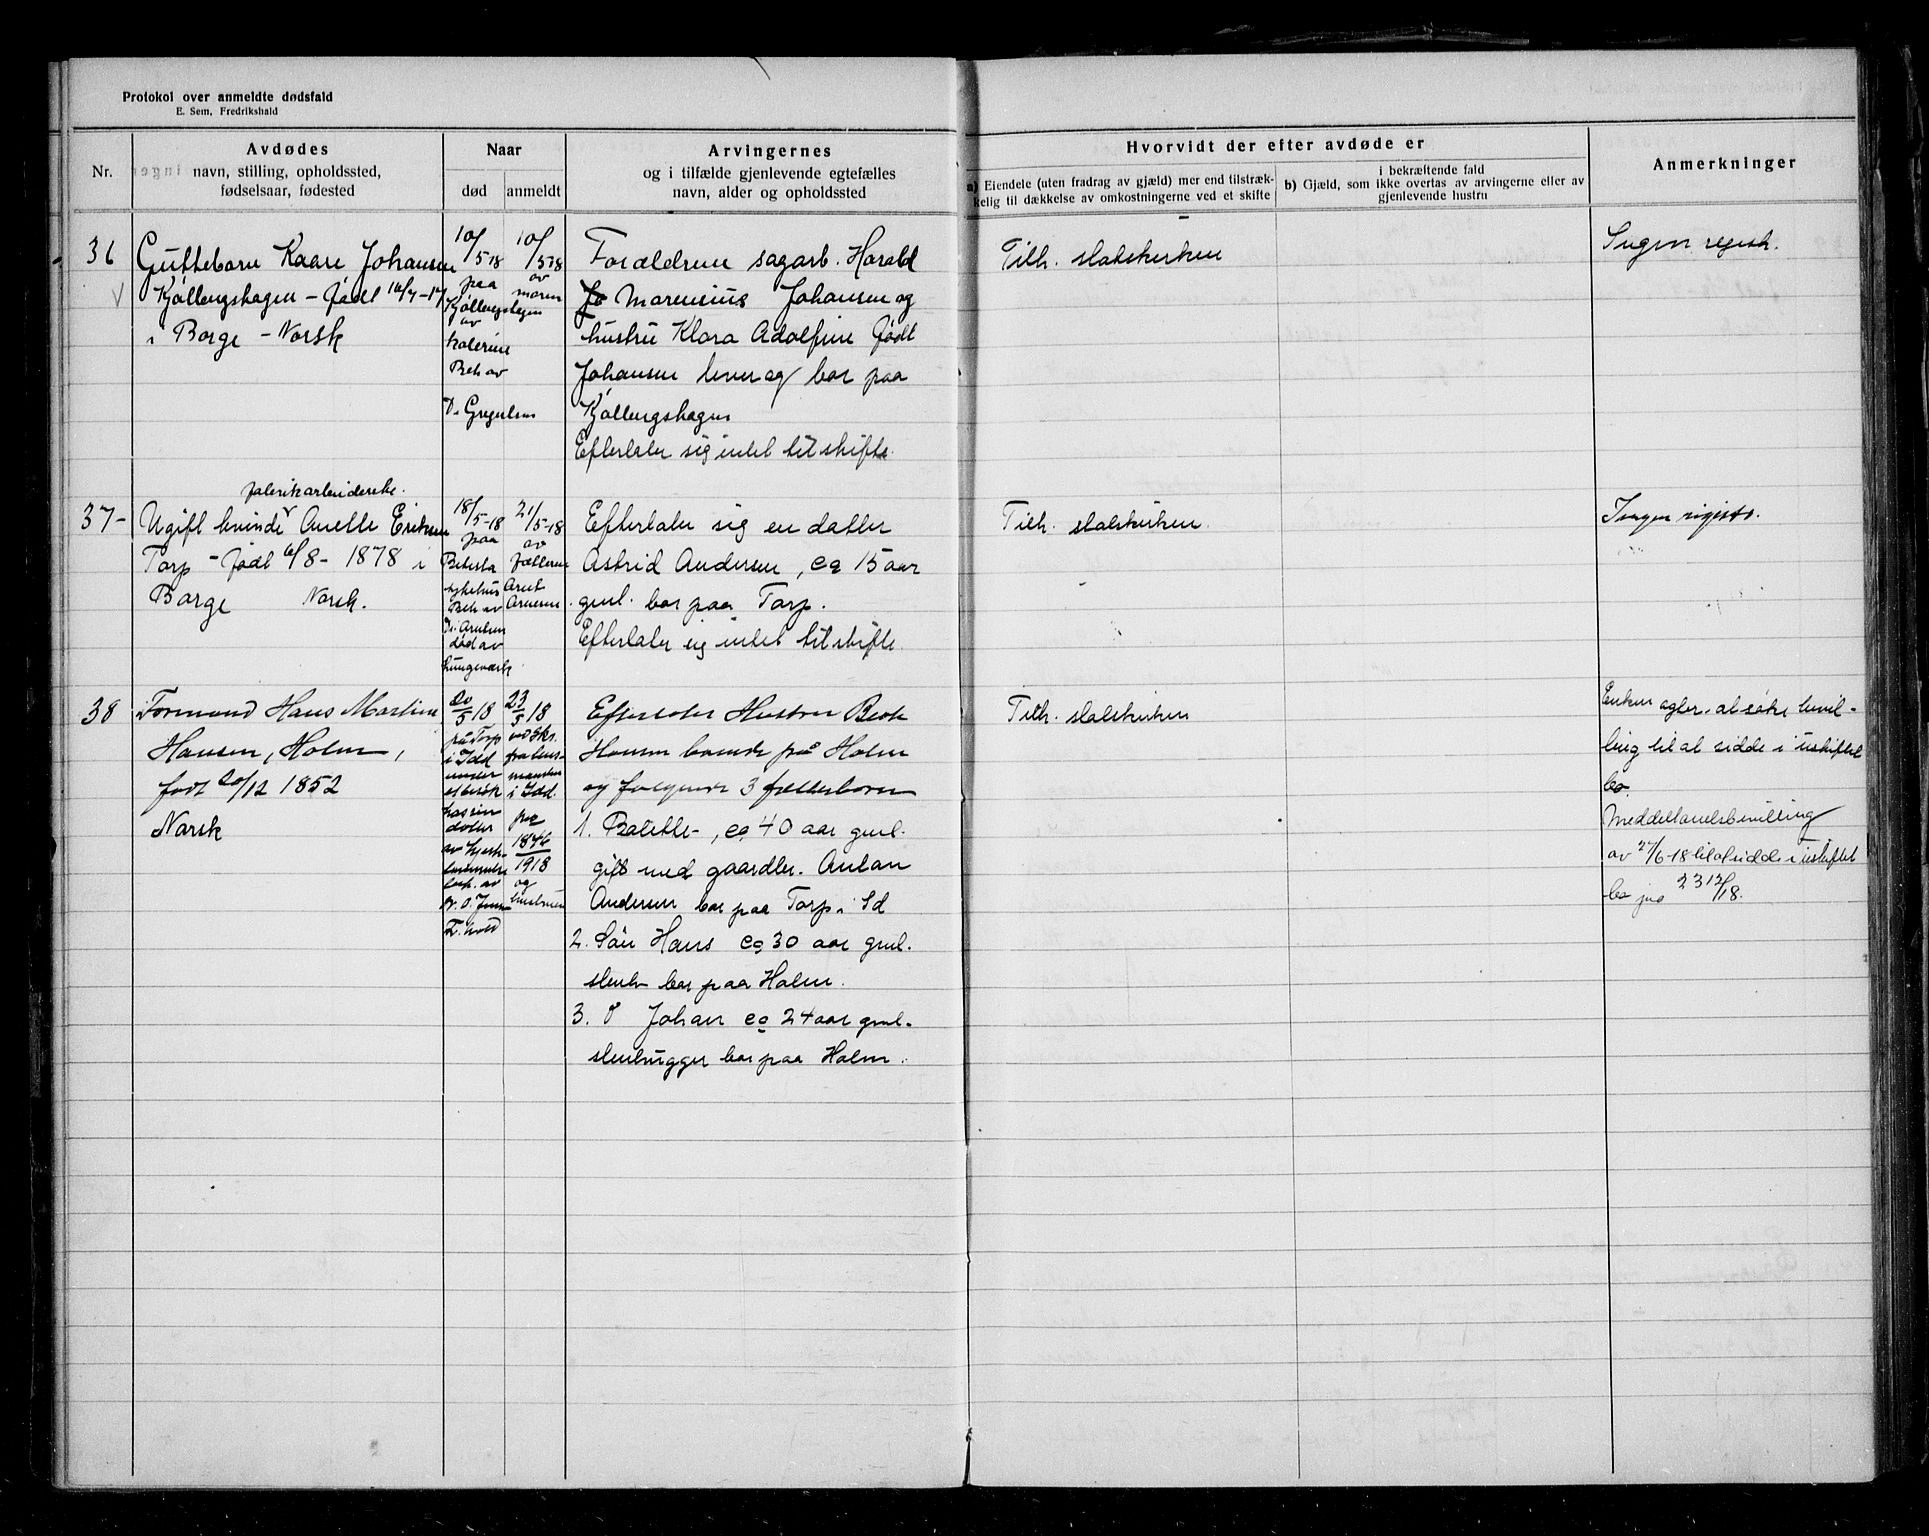 Protokol over anmeldte dødsfald
E. Sem, Fredrikshald
Nr.
Avdødes
navn, stilling, opholdssted,
fødselsaar, fødested
Naar
død
anmeldt
Arvingernes
og i tilfælde gjenlevende egtefælles
navn, alder og opholdssted
Hvorvidt der efter avdøde er
a) Eiendele (uten fradrag av gjæld) mer end tilstræk-
kelig til dækkelse av omkostningerne ved et skifte
i bekræftende fald
b) Gjæld, som ikke overtas av arvingerne eller av
gjenlevende hustru
Anmerkninger
36
Guttebarn Kaare Johansen
Kjøllergshagen - født 16/7-17
i Borge - Norsk
10/5-18
paa
Kjøllergshagen
av
Beh av
Dr Gregusen
10/5-18
av
moren
Forældrene sagarb. Harald
Marensius Johansen og
hustru Klara Adolfine født
Johansen lever og bor paa
Kjøllergshagen
Efterlater sig intet til skifte.
Tilh. statskirken
Ingen regist.
37-
fabrikarbeiderske.
Ugift kvinde Anette Eriksen
Torp - født 6/8-1878 i
Borge Norsk.
18/5-18
paa
Betesta
sykehus
Beh av
Dr.
død av
21/5-18
av
Efterlater sig en datter
Astrid Andersen, ca 15 aar
gml. bor paa Torp.
Efterlater sig intet til skifte.
Tilh. statskirken.
Ingen registr.
38
Formand Hans Martin
Hansen, Holm,
født 20/12 1852
Norsk
20/5 18
på Torp
i Idd
under
et besøk
hos sin
datter
av hjerte
beh. av
23/5 18
ved skr.
fra lens-
manden
i Idd.
1846/1918
og
Efterlater Hustru Berte
Hansen boende på Holm
og følgende 3 fællesbarn
1. Balette, ca 40 aar gml.
gift med gaardbr. Anton
Andersen bor paa Torp i Id
2. Søn Hans ca 30 aar gml.
stenh bor paa Holm.
3. Johan ca 24 aar gml.
stenhugger bor paa Holm.
Tilh. statskirken
Enken agter at søke bevil-
ling til at sidde i uskiftet
bo.
Meddelt bevilling
av 27/6-18 til at sidde i uskiftet
bo 23 12/18.